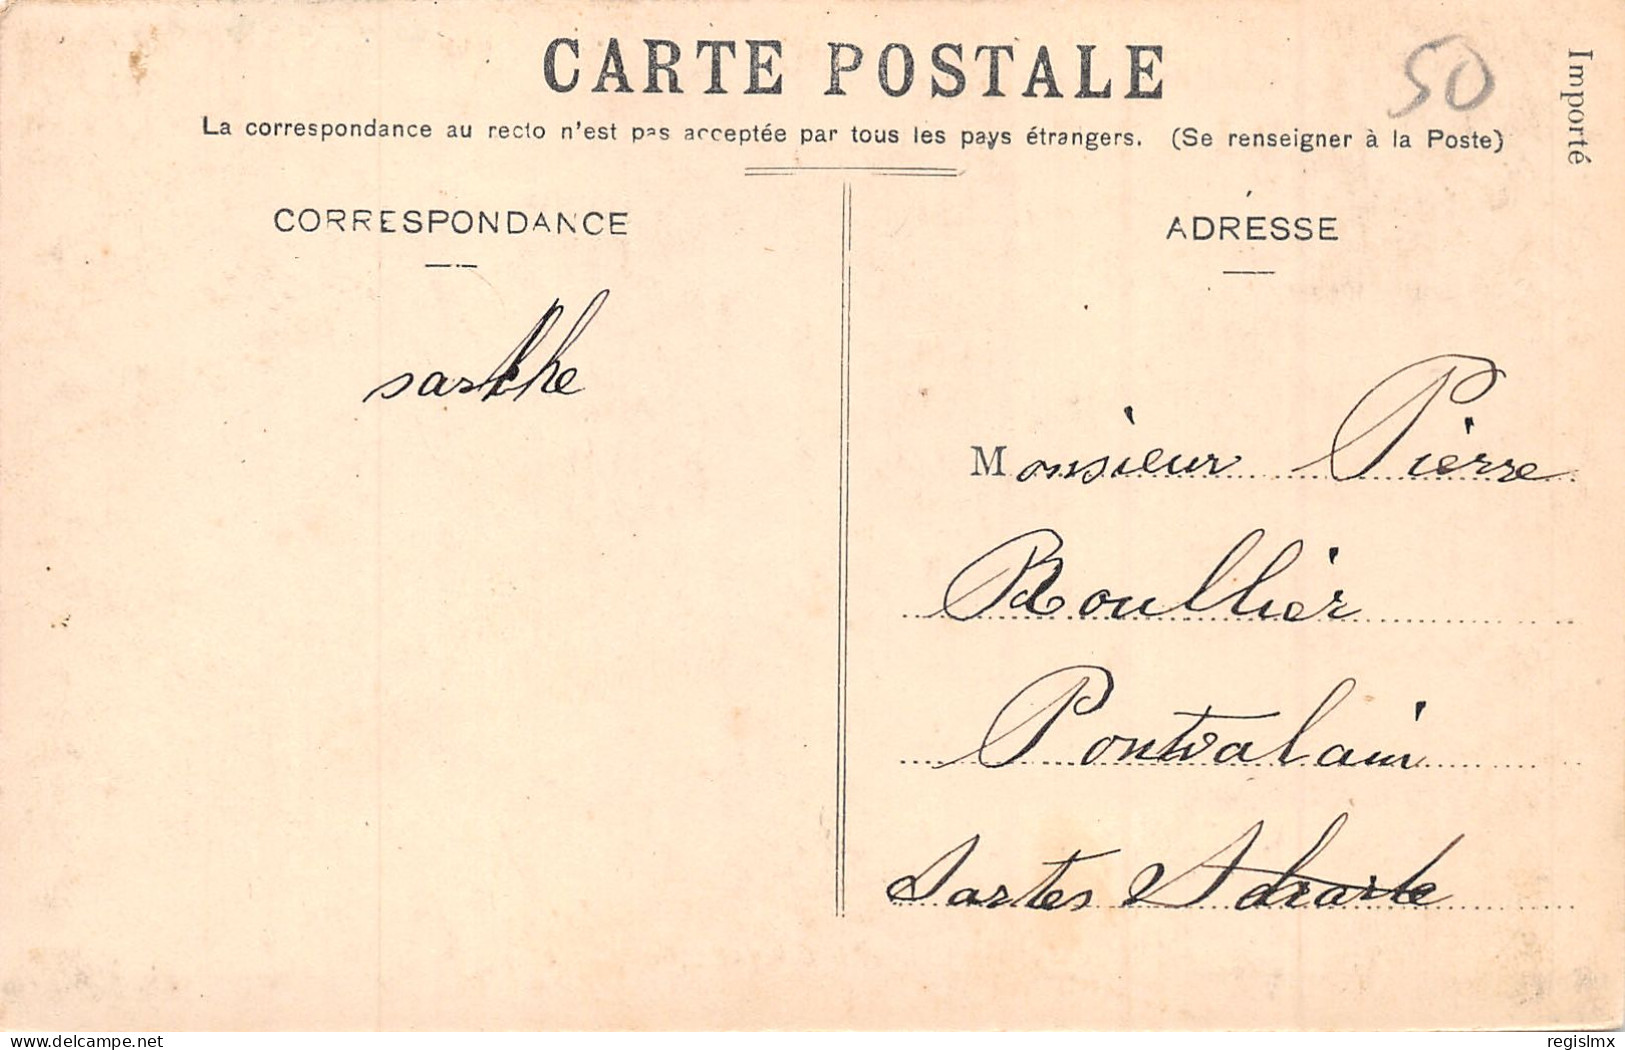 CARTE POSTALE
50
Importé
La correspondance au recto n'est pas acceptée par tous les pays étrangers. (Se renseigner à la Poste)
CORRESPONDANCE
ADRESSE
sarthe
Monsieur Pierre
Roullier
Pontvalain
Sartes
delcampe.net
regislmx